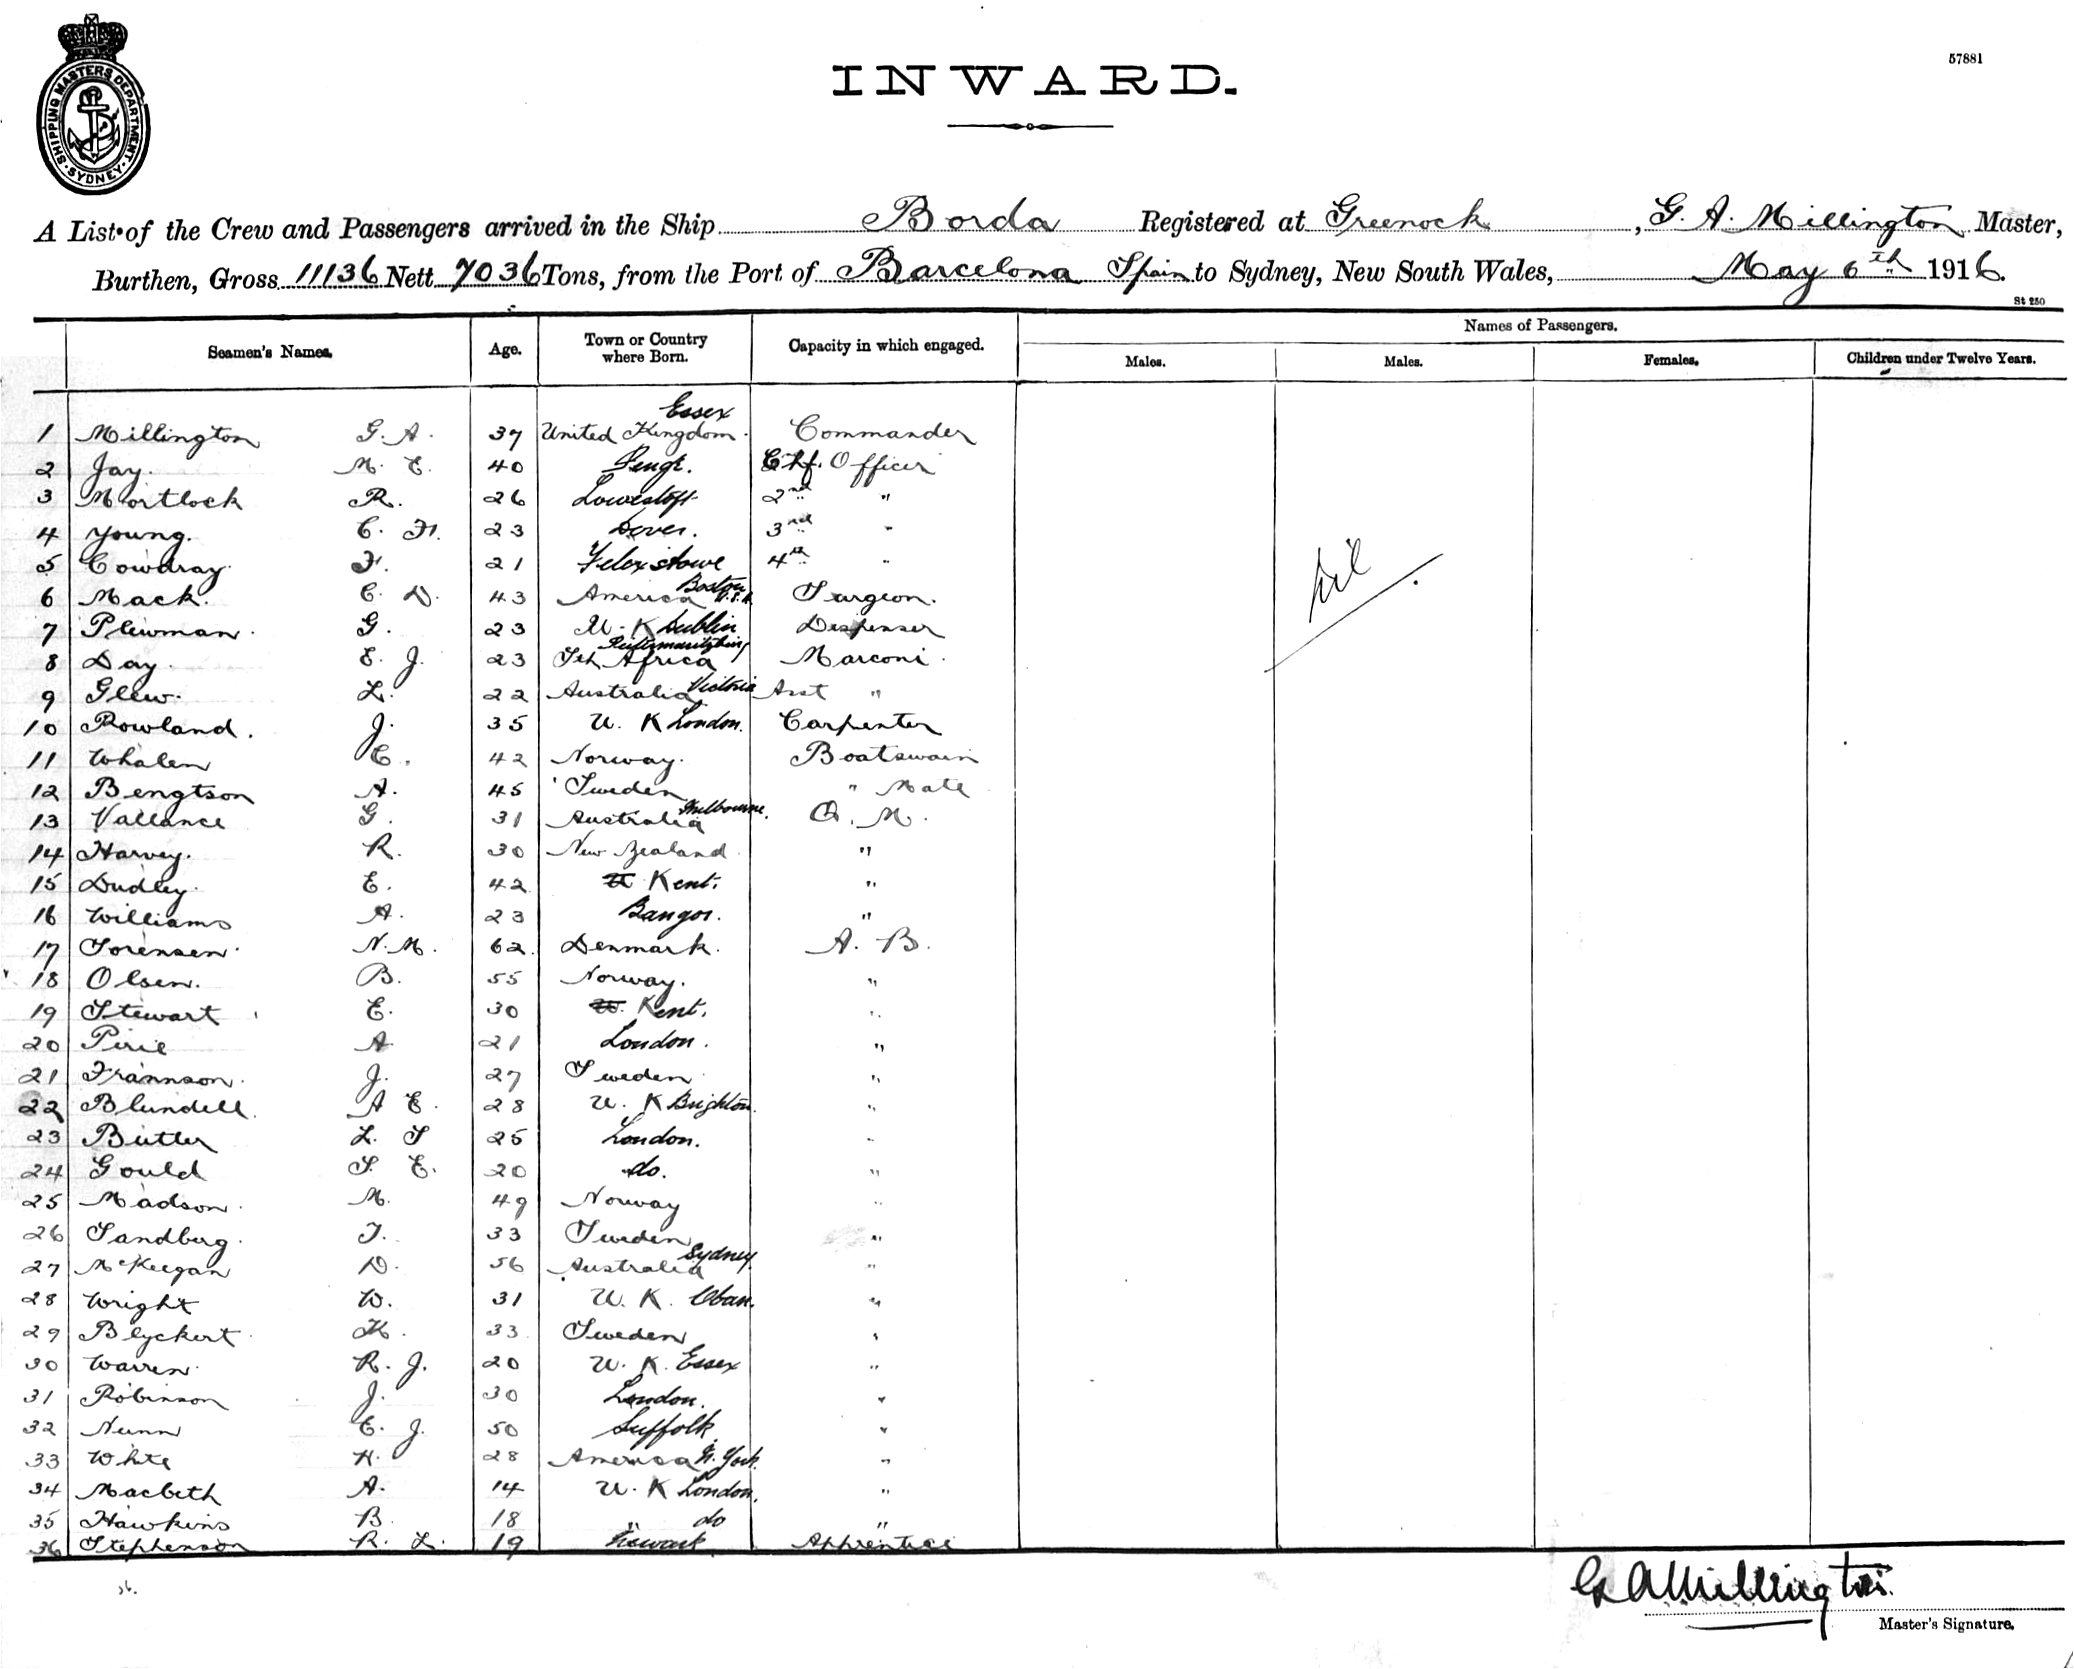 SHIPPING MASTERS DEPARTMENT. SYDNEY
57881
INWARD.
A List of the Crew and Passengers arrived in the Ship Borda Registered at Greenock, G. A. Millington Master,
Burthen, Gross 11136 Nett 7036 Tons, from the Port of Barcelona Spain to Sydney, New South Wales, May 6th 1916.
St 250
Seamen's Names. Age. Town or Country where Born. Capacity in which engaged. Names of Passengers.
Males. Males. Females. Children under Twelve Years.
1 Millington G. A. 37 United Kingdom. Essex Commander
2 Jay. M. E. 40 Penge. Chf. Officer
3 Mortlock R. 26 Lowestoft 2nd "
4 Young. C. F. 23 Dover. 3rd "
5 Cowdray F. 21 Felixstowe 4th "
6 Mack. C. D. 43 America Boston U.S.A. Surgeon.
7 Plewman. G. 23 U. K Dublin Dispenser
8 Day. E. J. 23 Sth Africa Marconi.
9 Glew. L. 22 Australia Victoria Asst "
10 Rowland. J. 35 U. K London. Carpenter
11 Whalen C. 42 Norway. Boatswain
12 Bengtson A. 45 Sweden " Mate
13 Vallance G. 31 Australia Melbourne. Q. M.
14 Harvey. R. 30 New Zealand "
15 Dudley. E. 42 Kent. "
16 Williams A. 23 Bangor. "
17 Sorensen. N. M. 62 Denmark. A. B.
18 Olsen. B. 55 Norway. "
19 Stewart E. 30 Kent. "
20 Pirie A 21 London. "
21 Frannson. J. 27 Sweden "
22 Blundell. A E. 28 U. K Brighton. "
23 Butler L. S 25 London. "
24 Gould S. E. 20 do. "
25 Madson. M. 49 Norway "
26 Sandberg. T. 33 Sweden "
27 McKeegan D. 56 Australia Sydney. "
28 Wright W. 31 U. K. Oban. "
29 Blyckert. K. 33 Sweden "
30 Warren. R. J. 20 U. K. Essex "
31 Robinson J. 30 London. "
32 Nunn C. J. 50 Suffolk "
33 White H. 28 America N. York. "
34 Macbeth A. 14 U. K London. "
35 Hawkins B. 18 " do "
36 Stephenson R. L. 19 Newark Apprentice
Nil
36.
G A Millington.
Master's Signature.